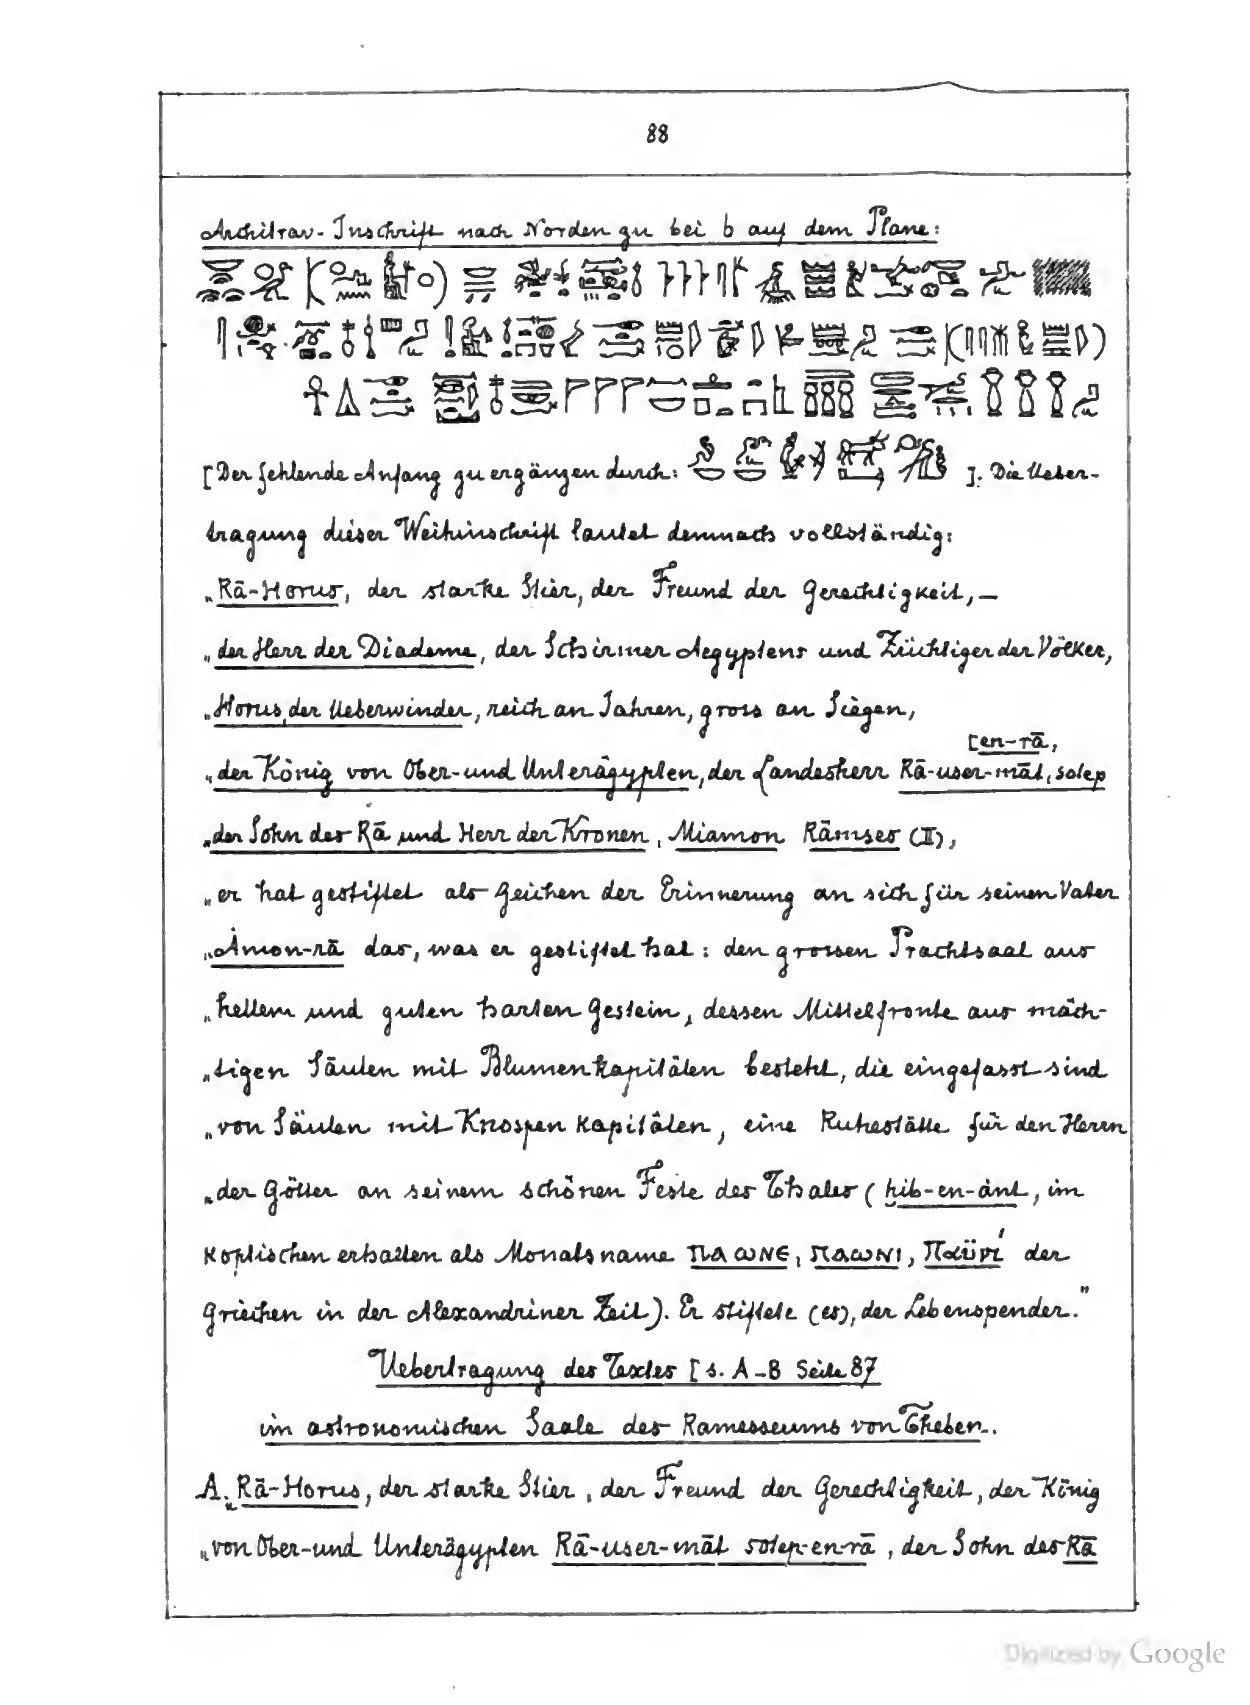 88
Architrav-Inschrift nach Norden zu bei b auf dem Plane:
[Der fehlende Anfang zu ergänzen durch: ]. Die Ueber-
tragung dieser Weihinschrift lautet demnach vollständig:
„Rā-Horus, der starke Stier, der Freund der Gerechtigkeit, —
„der Herr der Diademe, der Schirmer Aegyptens und Züchtiger der Völker,
„Horus, der Ueberwinder, reich an Jahren, gross an Siegen,
[en-rā,
„der König von Ober-und Unterägypten, der Landesherr Rā-user-māt, sotep
„der Sohn des Rā und Herr der Kronen, Miamon Rāmses (II),
„er hat gestiftet als Zeichen der Erinnerung an sich für seinen Vater
„Åmon-rā das, was er gestiftet hat: den grossen Prachtsaal aus
„hellem und guten harten Gestein, dessen Mittelfronte aus mäch-
„tigen Säulen mit Blumenkapitälen besteht, die eingefasst sind
„von Säulen mit Knospenkapitälen, eine Ruhestätte für den Herrn
„der Götter an seinem schönen Feste des Thales (ḥib-en-ȧnt, im
Koptischen erhalten als Monatsname ⲡⲁⲱⲛⲉ, ⲡⲁⲱⲛⲓ, Παϋνί der
Griechen in der Alexandriner Zeit). Er stiftete (es), der Lebenspender."
Uebertragung des Textes [s. A-B Seite 87
im astronomischen Saale des Ramesseums von Theben.
A. „Rā-Horus, der starke Stier, der Freund der Gerechtigkeit, der König
„von Ober-und Unterägypten Rā-user-māt sotep-en-rā, der Sohn des Rā
Digitized by Google